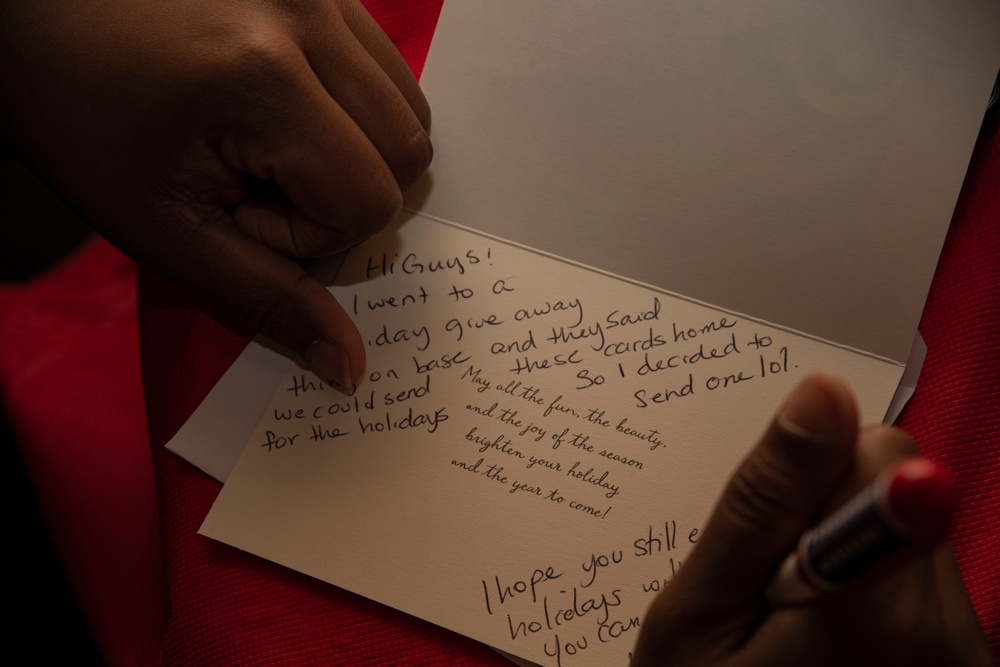 Hi Guys!
I went to a
give away
on base and they said
we could send these cards home
for the holidays So I decided to
Send one lol.
May all the fun, the beauty,
and the joy of the season
brighten your holiday
and the year to come!
I hope you still
holidays
You can